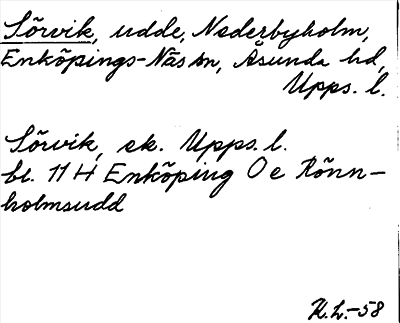 Sörvik, udde, Nederbyholm,
Enköpings-Näs sn, Åsunda hd,
Upps. l.
Sörvik, ek. Upps. l.
bl. 11 H Enköping O e Rönn-
holmsudd
K.L.-58